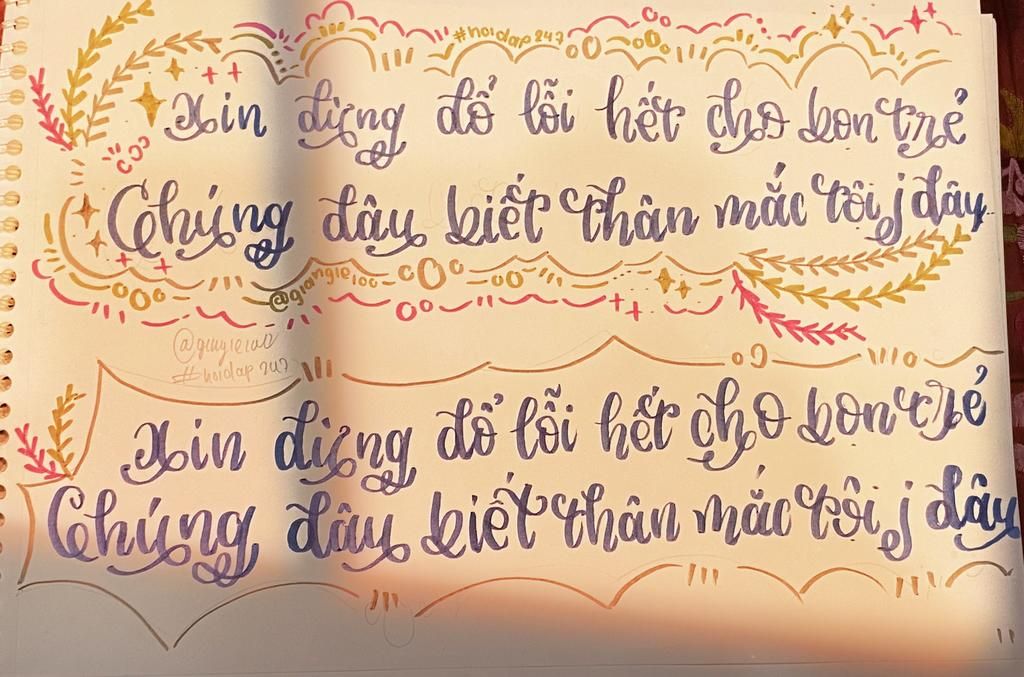 #hoidap247
Xin đừng đổ lỗi hết cho bọn trẻ
Chúng đâu biết thân mắc tội j đây
@giangle100
@gangle100
#hoidap247
Xin đừng đổ lỗi hết cho bọn trẻ
Chúng đâu biết thân mắc tội j đây